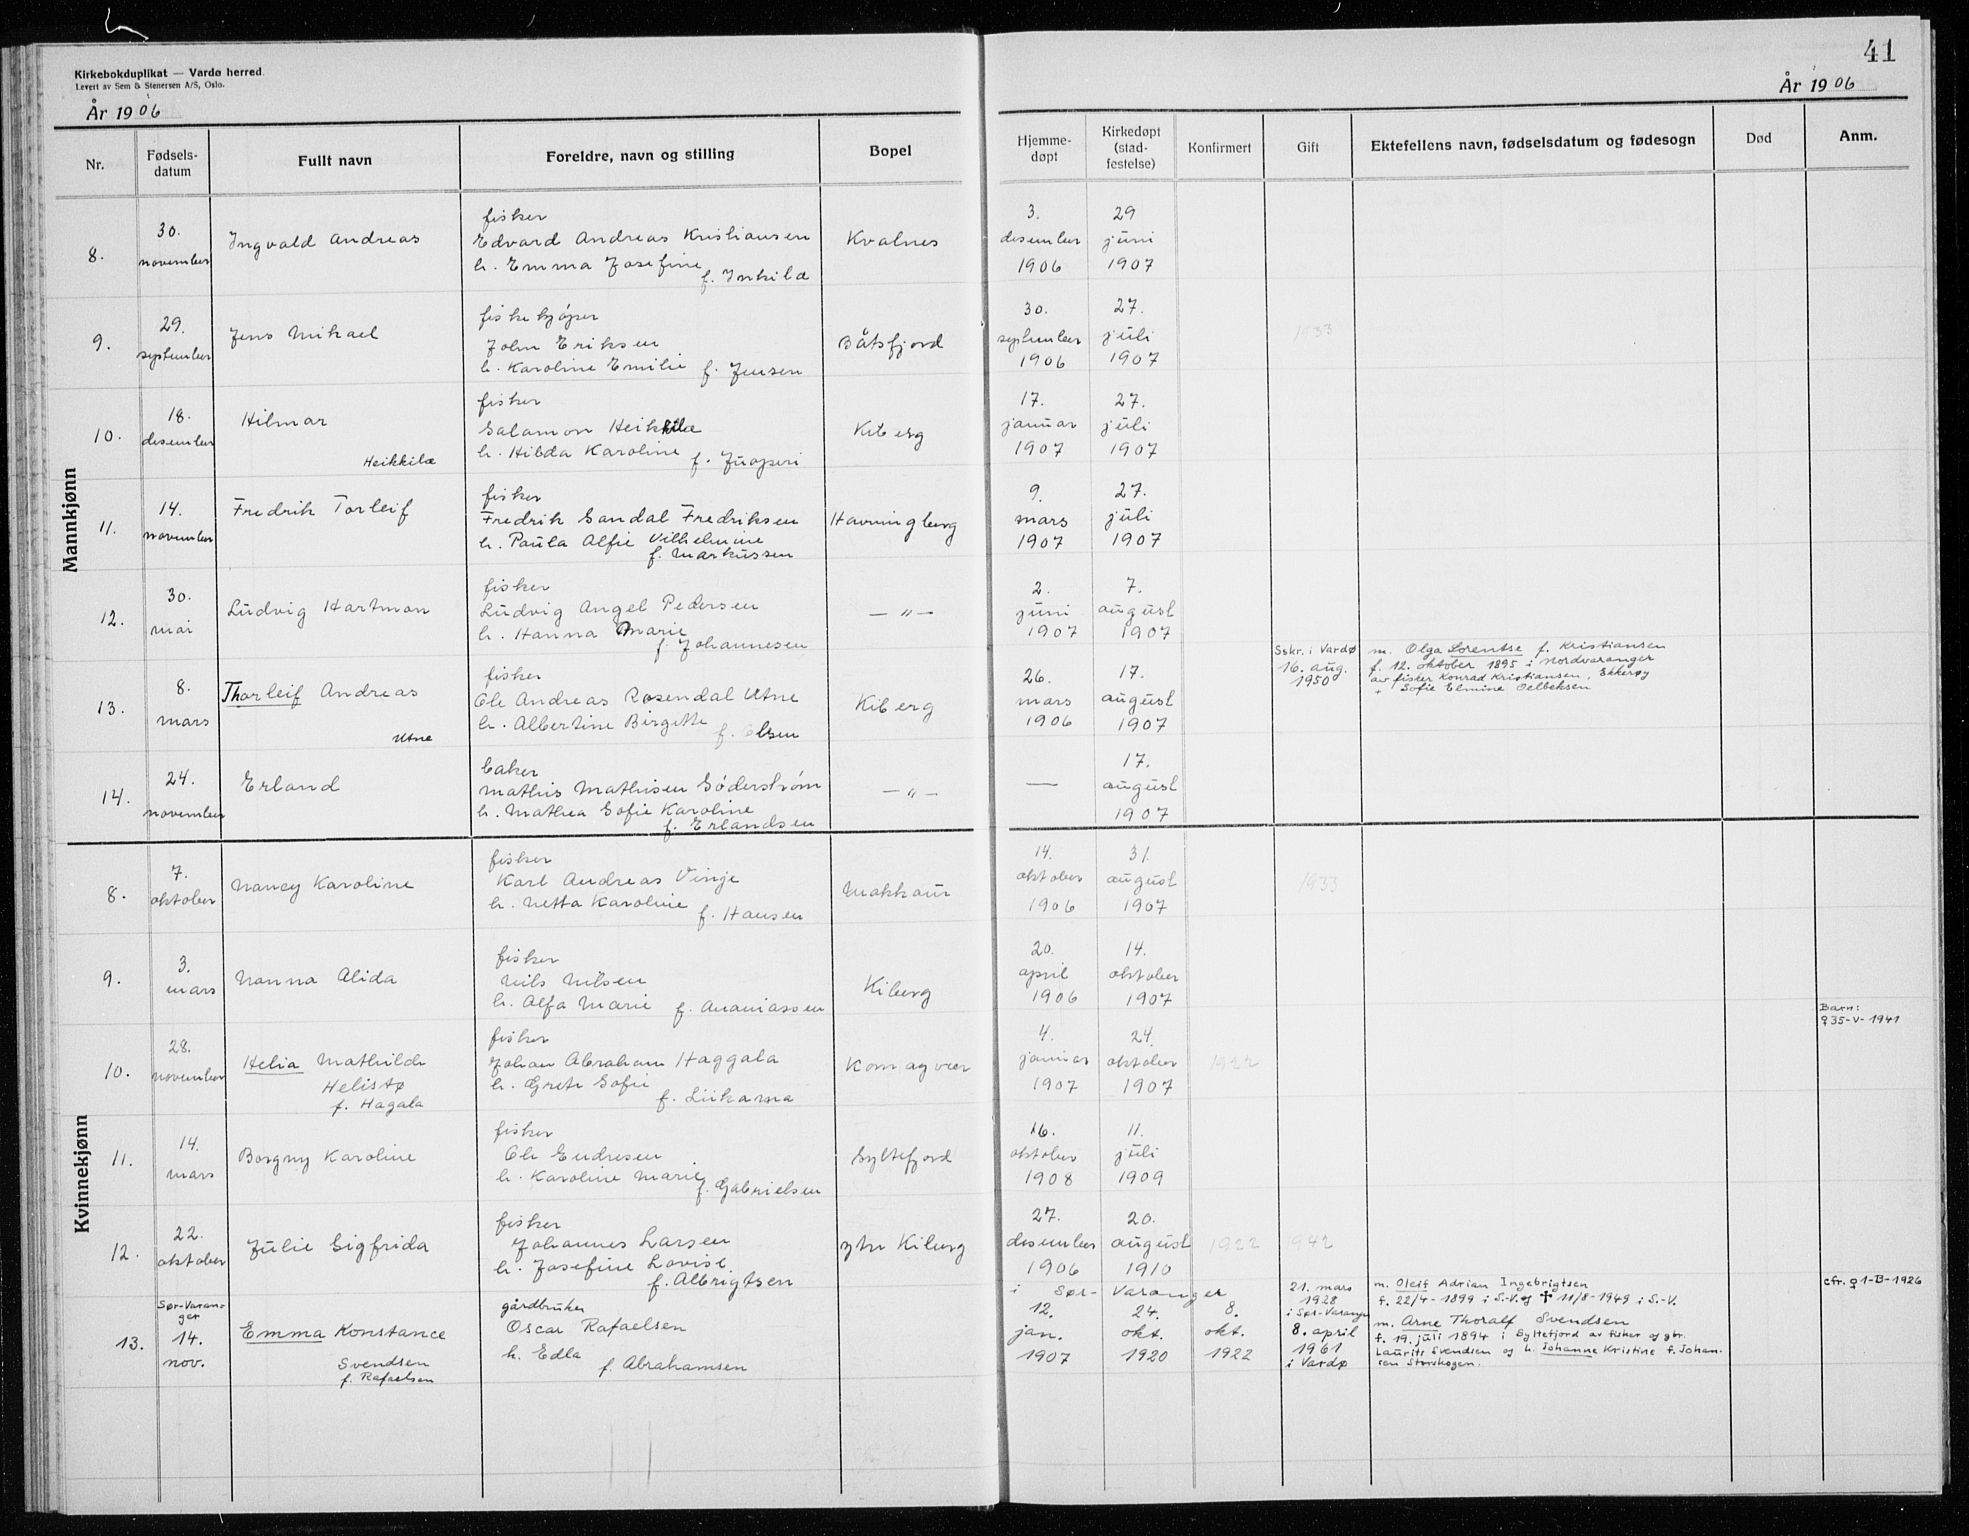 41
Kirkebokduplikat — Vardø herred.
Levert av Sem & Stenersen A/S, Oslo.
År 1906
År 1906
Nr.
Fødsels-
datum
Fullt navn
Foreldre, navn og stilling
Bopel
Hjemme-
døpt
Kirkedøpt
(stad-
festelse)
Konfirmert
Gift
Ektefellens navn, fødselsdatum og fødesogn
Død
Anm.
Mannkjønn
8.
30.
november
Ingvald Andreas
fisker
Edvard Andreas Kristiansen
h. Emma Josefine
f. Inkila
Kvalnes
3.
desember
1906
29
juni
1907
9.
29.
september
Jens Mikael
fiskekjøper
John Eriksen
h. Karoline Emilie
f. Jensen
Båtsfjord
30.
september
1906
27.
juli
1907
1933
10.
18.
desember
Hilmar
Heikkilæ
fisker
Salamon Heikkilæ
h. Hilda Karoline
f.
Kiberg
17.
januar
1907
27.
juli
1907
11.
14.
november
Fredrik Torleif
fisker
Fredrik Sandal Fredriksen
h. Paula Alfie Vilhelmine
f. Markussen
Havningberg
9.
mars
1907
27.
juli
1907
12.
30.
mai
Ludvig Hartman
fisker
Ludvig Angel Pedersen
h. Hanna Marie
f. Johannesen
— " —
2.
juni
1907
7.
august
1907
13.
8.
mars
Thorleif Andreas
Utne
fisker
Ole Andreas Rosendal Utne
h. Albertine Birgitte
f. Olsen
Kiberg
26.
mars
1906
17.
august
1907
Sskr. i Vardø
16. aug.
1950
m. Olga Lorentse f. Kristiansen
f. 12. oktober 1895 i Nordvaranger
av fisker Konrad Kristiansen, Ekkerøy
+ Sofie Elmine Oelbeksen
14.
24.
november
Erland
baker
Mathis Mathisen Søderstrøm
h. Mathea Sofie Karoline
f. Erlandsen
— " —
—
17.
august
1907
Kvinnekjønn
8.
7.
oktober
Nancy Karoline
fisker
Karl Andreas Vinje
h. Netta Karoline
f. Hansen
Makkaur
14.
oktober
1906
31.
august
1907
1933
9.
3.
mars
Nanna Alida
fisker
Nils Nilsen
h. Alfa Marie
f. Ananiassen
Kiberg
20.
april
1906
14.
oktober
1907
10.
28.
november
Helia Mathilde
Helistø
f. Hagala
fisker
Johan Abraham Haggala
h. Grete Sofie
f. Liikama
Komagvær
4.
januar
1907
24.
oktober
1907
1922
Barn:
♀35-V-1941
11.
14.
mars
Borgny Karoline
fisker
Ole Endresen
h. Karoline Marie
f. Gabrielsen
Syltefjord
16.
oktober
1908
11.
juli
1909
12.
22.
oktober
Julie Sigfrida
fisker
Johannes Larsen
h. Josefine Lovise
f. Albrigtsen
ytre Kiberg
27.
desember
1906
20.
august
1910
1922
1942
13.
Sør-Varan-
ger
14.
nov.
Emma Konstance
Svendsen
f. Rafaelsen
gårdbruker
Oscar Rafaelsen
h. Edla
f. Abrahamsen
i Sør-Varanger
12.
jan.
1907
24.
okt.
1920
8.
okt.
1922
21. mars
1928
i Sør-Varanger
8. april
1961
i Vardø
m. Oleif Adrian Ingebrigtsen
f. 22/4-1899 i S.-V. og ✝ 11/8-1949 i S.-V.
m. Arne Thoralf Svendsen
f. 19. juli 1894 i Syltefjord av fisker og gbr.
Laurits Svendsen og h. Johanne Kristine f. Johan-
sen Storskogen.
cfr. ♀1-B-1926